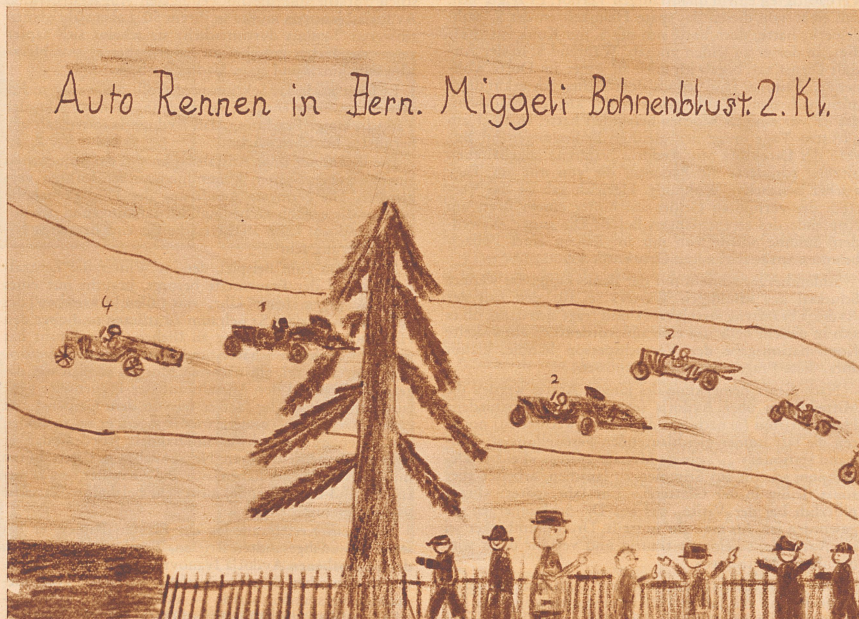 Auto Rennen in Bern. Miggeli Bohnenblust. 2. Kl.
4
1
3
2